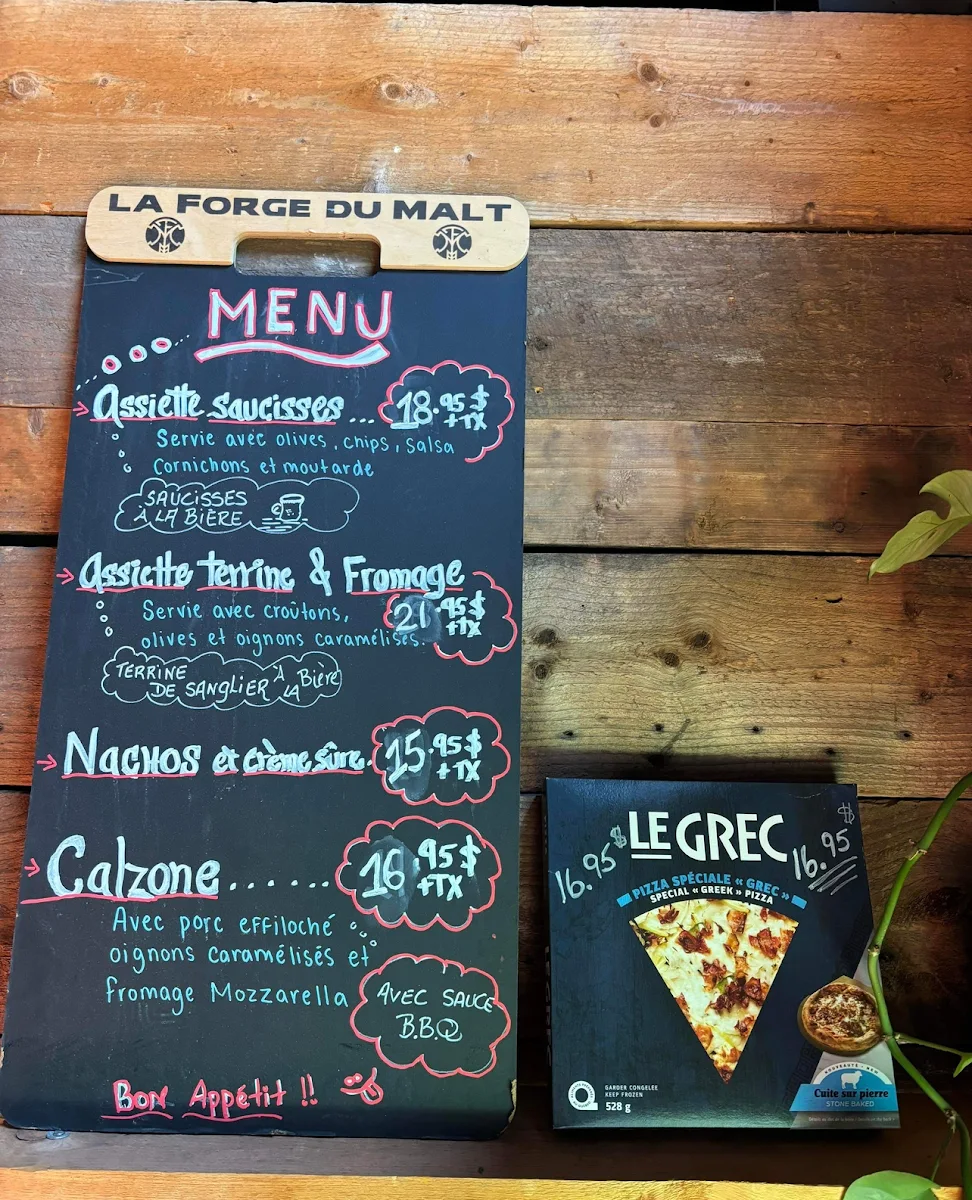 LA FORGE DU MALT
MENU
Assiette saucisses ... 18.95$ +TX
Servie avec olives, chips, salsa
Cornichons et moutarde
SAUCISSES
À LA BIÈRE
Assiette terrine & Fromage
21.95$ +TX
Servie avec croûtons,
olives et oignons caramélisés.
TERRINE
DE SANGLIER À LA Bière
NACHOS et crème sûre. 15.95$ +TX
Calzone ...... 16.95$ +TX
Avec porc effiloché
oignons caramélisés et
fromage Mozzarella
AVEC SAUCE
B.B.Q
Bon Appétit !!
LE GREC
16.95$
16.95$
PIZZA SPÉCIALE « GREC »
SPECIAL « GREEK » PIZZA
NOUVEAUTÉ • NEW
Cuite sur pierre
STONE BAKED
GARDER CONGELÉE
KEEP FROZEN
528 g